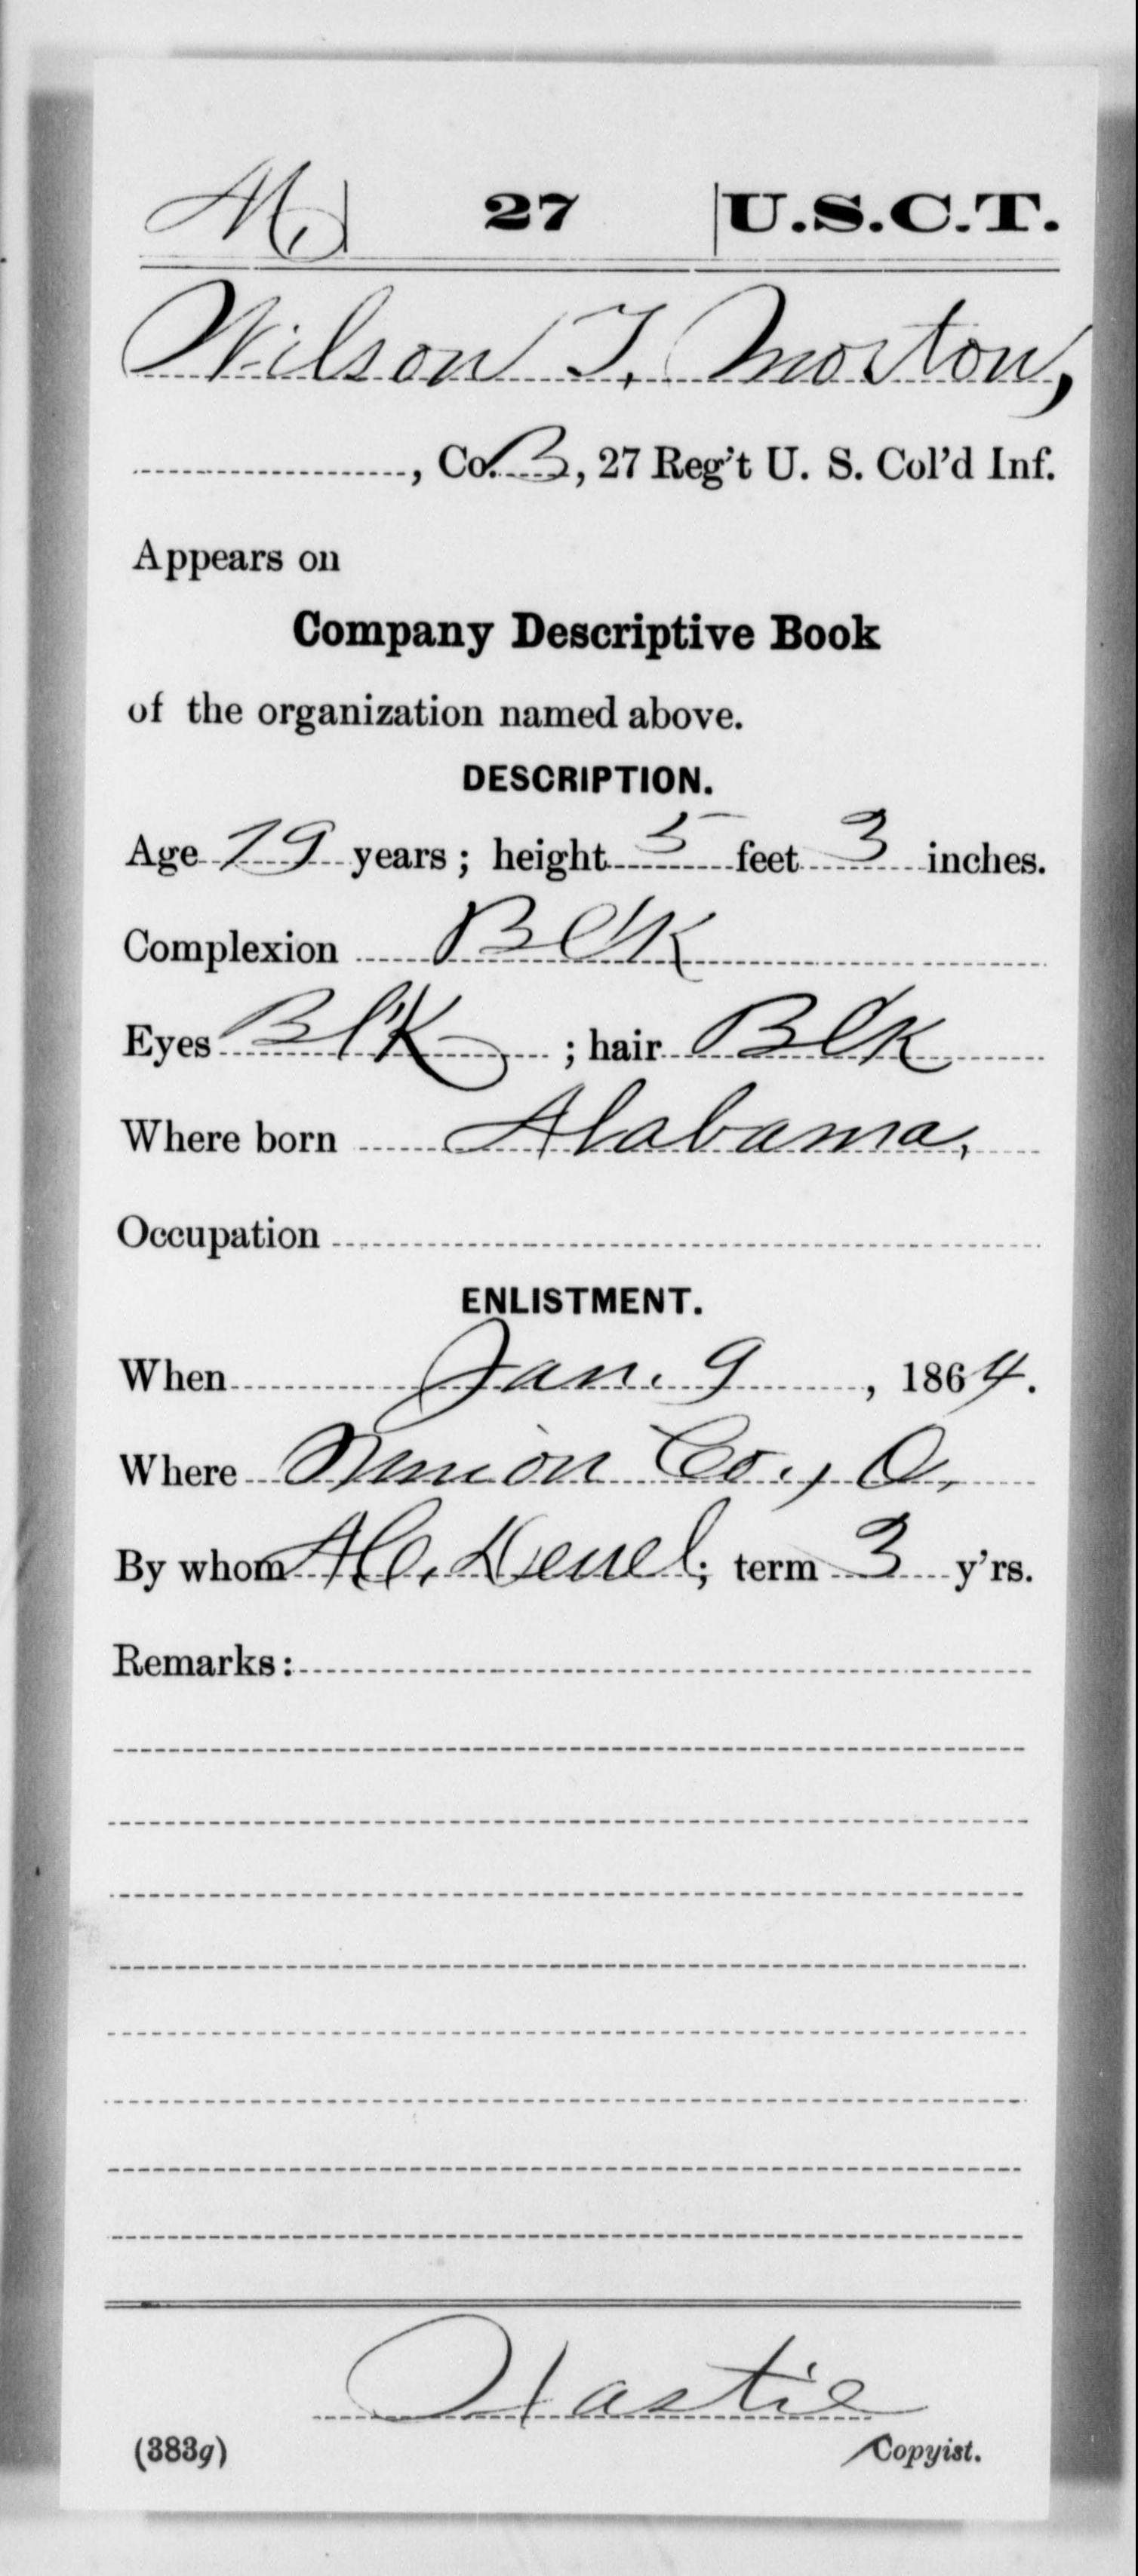 M | 27 | U.S.C.T.
Wilson T. Morton,
, Co. B, 27 Reg't U. S. Col'd Inf.
Appears on
Company Descriptive Book
of the organization named above.
DESCRIPTION.
Age 19 years; height 5 feet 3 inches.
Complexion Blk
Eyes Blk ; hair Blk
Where born Alabama,
Occupation
ENLISTMENT.
When Jan. 9, 1864.
Where Union Co., O,
By whom ; term 3 y'rs.
Remarks:
Hastie
(383g) Copyist.